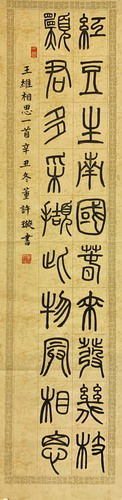 红豆生南國春来發幾枝
願君多采擷此物冣相思
王維相思一首辛丑冬董許璇書